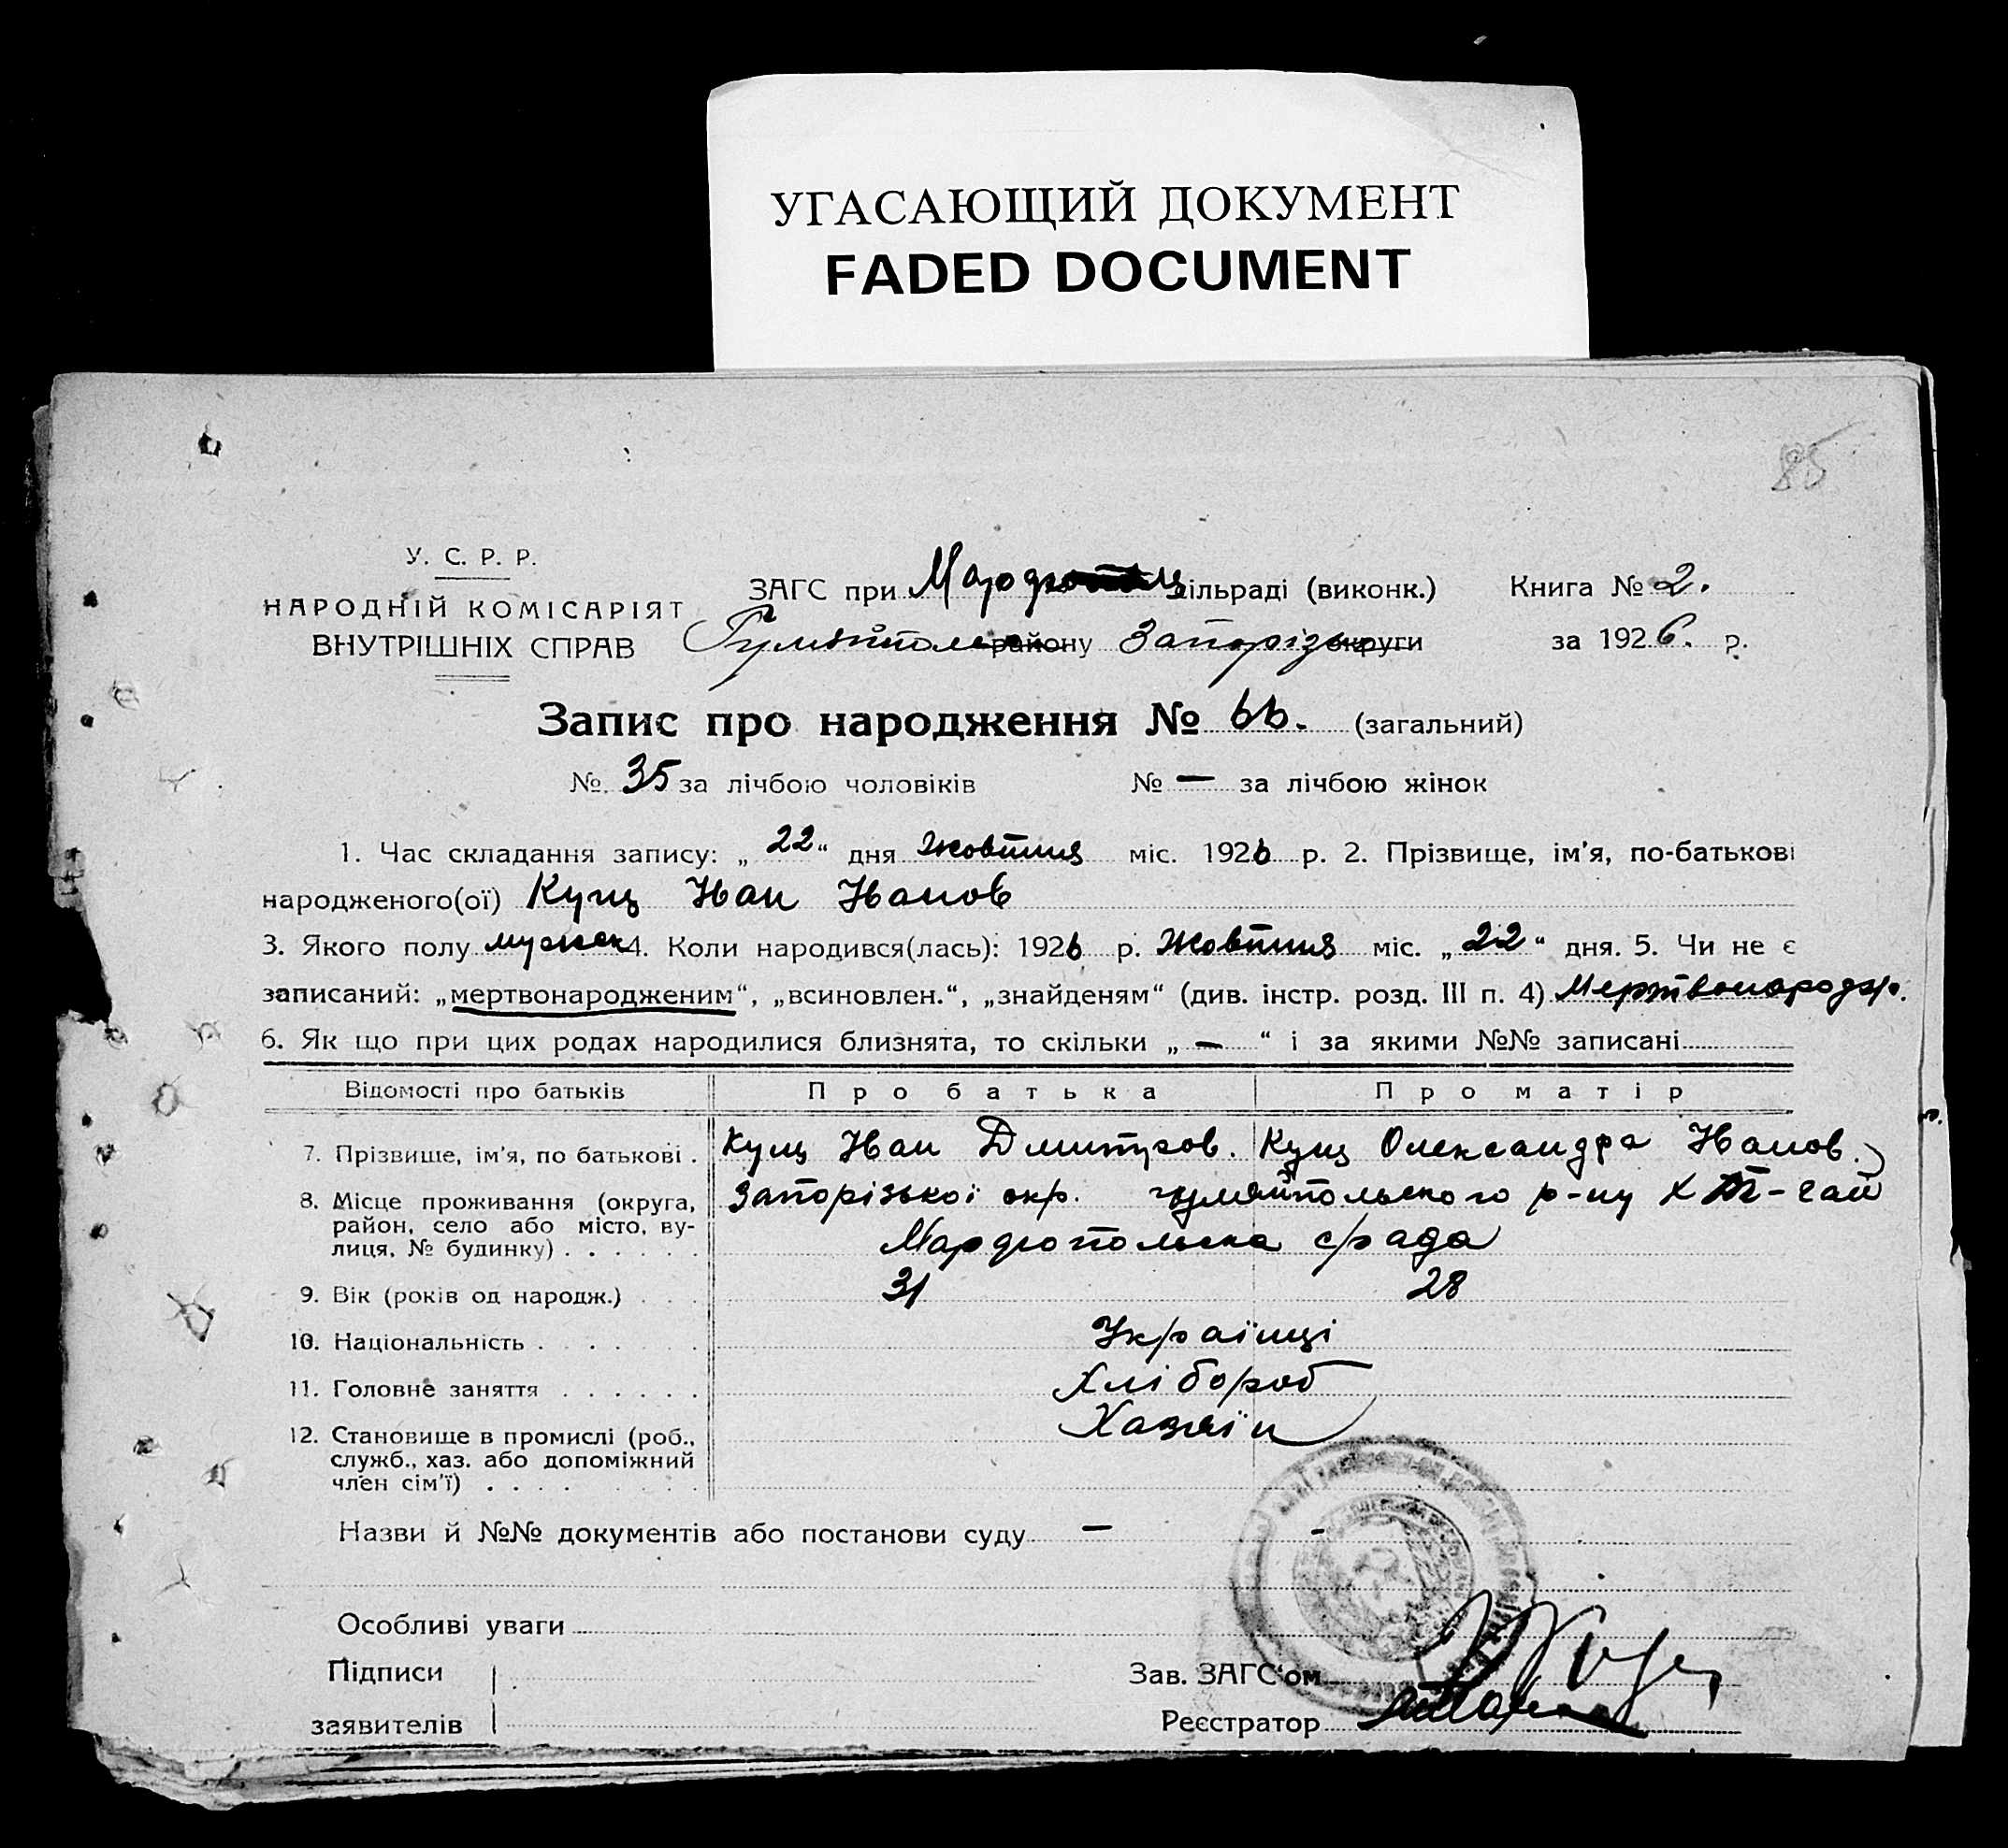 УГАСАЮЩИЙ ДОКУМЕНТ
FADED DOCUMENT
85
У. С. Р. Р.
НАРОДНІЙ КОМІСАРІЯТ
ВНУТРІШНІХ СПРАВ
ЗАГС при сільраді (виконк.) Книга № 2.
району Запорізьк округи за 1926. р.
Запис про народження № 66. (загальний)
№ 35 за лічбою чоловіків № — за лічбою жінок
1. Час складання запису: „22“ дня Жовтня міс. 1926 р. 2. Прізвище, ім'я, по-батькові
народженого(ої) Кущ Иван Иванов
3. Якого полу мужск 4. Коли народився(лась): 1926 р. Жовтня міс. „22“ дня. 5. Чи не є
записаний: „мертвонародженим“, „всиновлен.“, „знайденям“ (див. інстр. розд. III п. 4) Мертвонародж.
6. Як що при цих родах народилися близнята, то скільки „ — “ і за якими №№ записані
Відомості про батьків Про батька Про матір
7. Прізвище, ім'я, по батькові . Кущ Иван Дмитров. Кущ Олександра Иванов.
8. Місце проживання (округа, район, село або місто, вулиця, № будинку) Запорізької окр. р-ну
срада
9. Вік (років од народж.) 31 28
10. Національність Українці
11. Головне заняття Хлібороб
12. Становище в промислі (роб., служб., хаз. або допоміжний член сім'ї) Хазяїн
Назви й №№ документів або постанови суду — -
Особливі уваги
Підписи
заявителів
Зав. ЗАГС'ом
Реєстратор